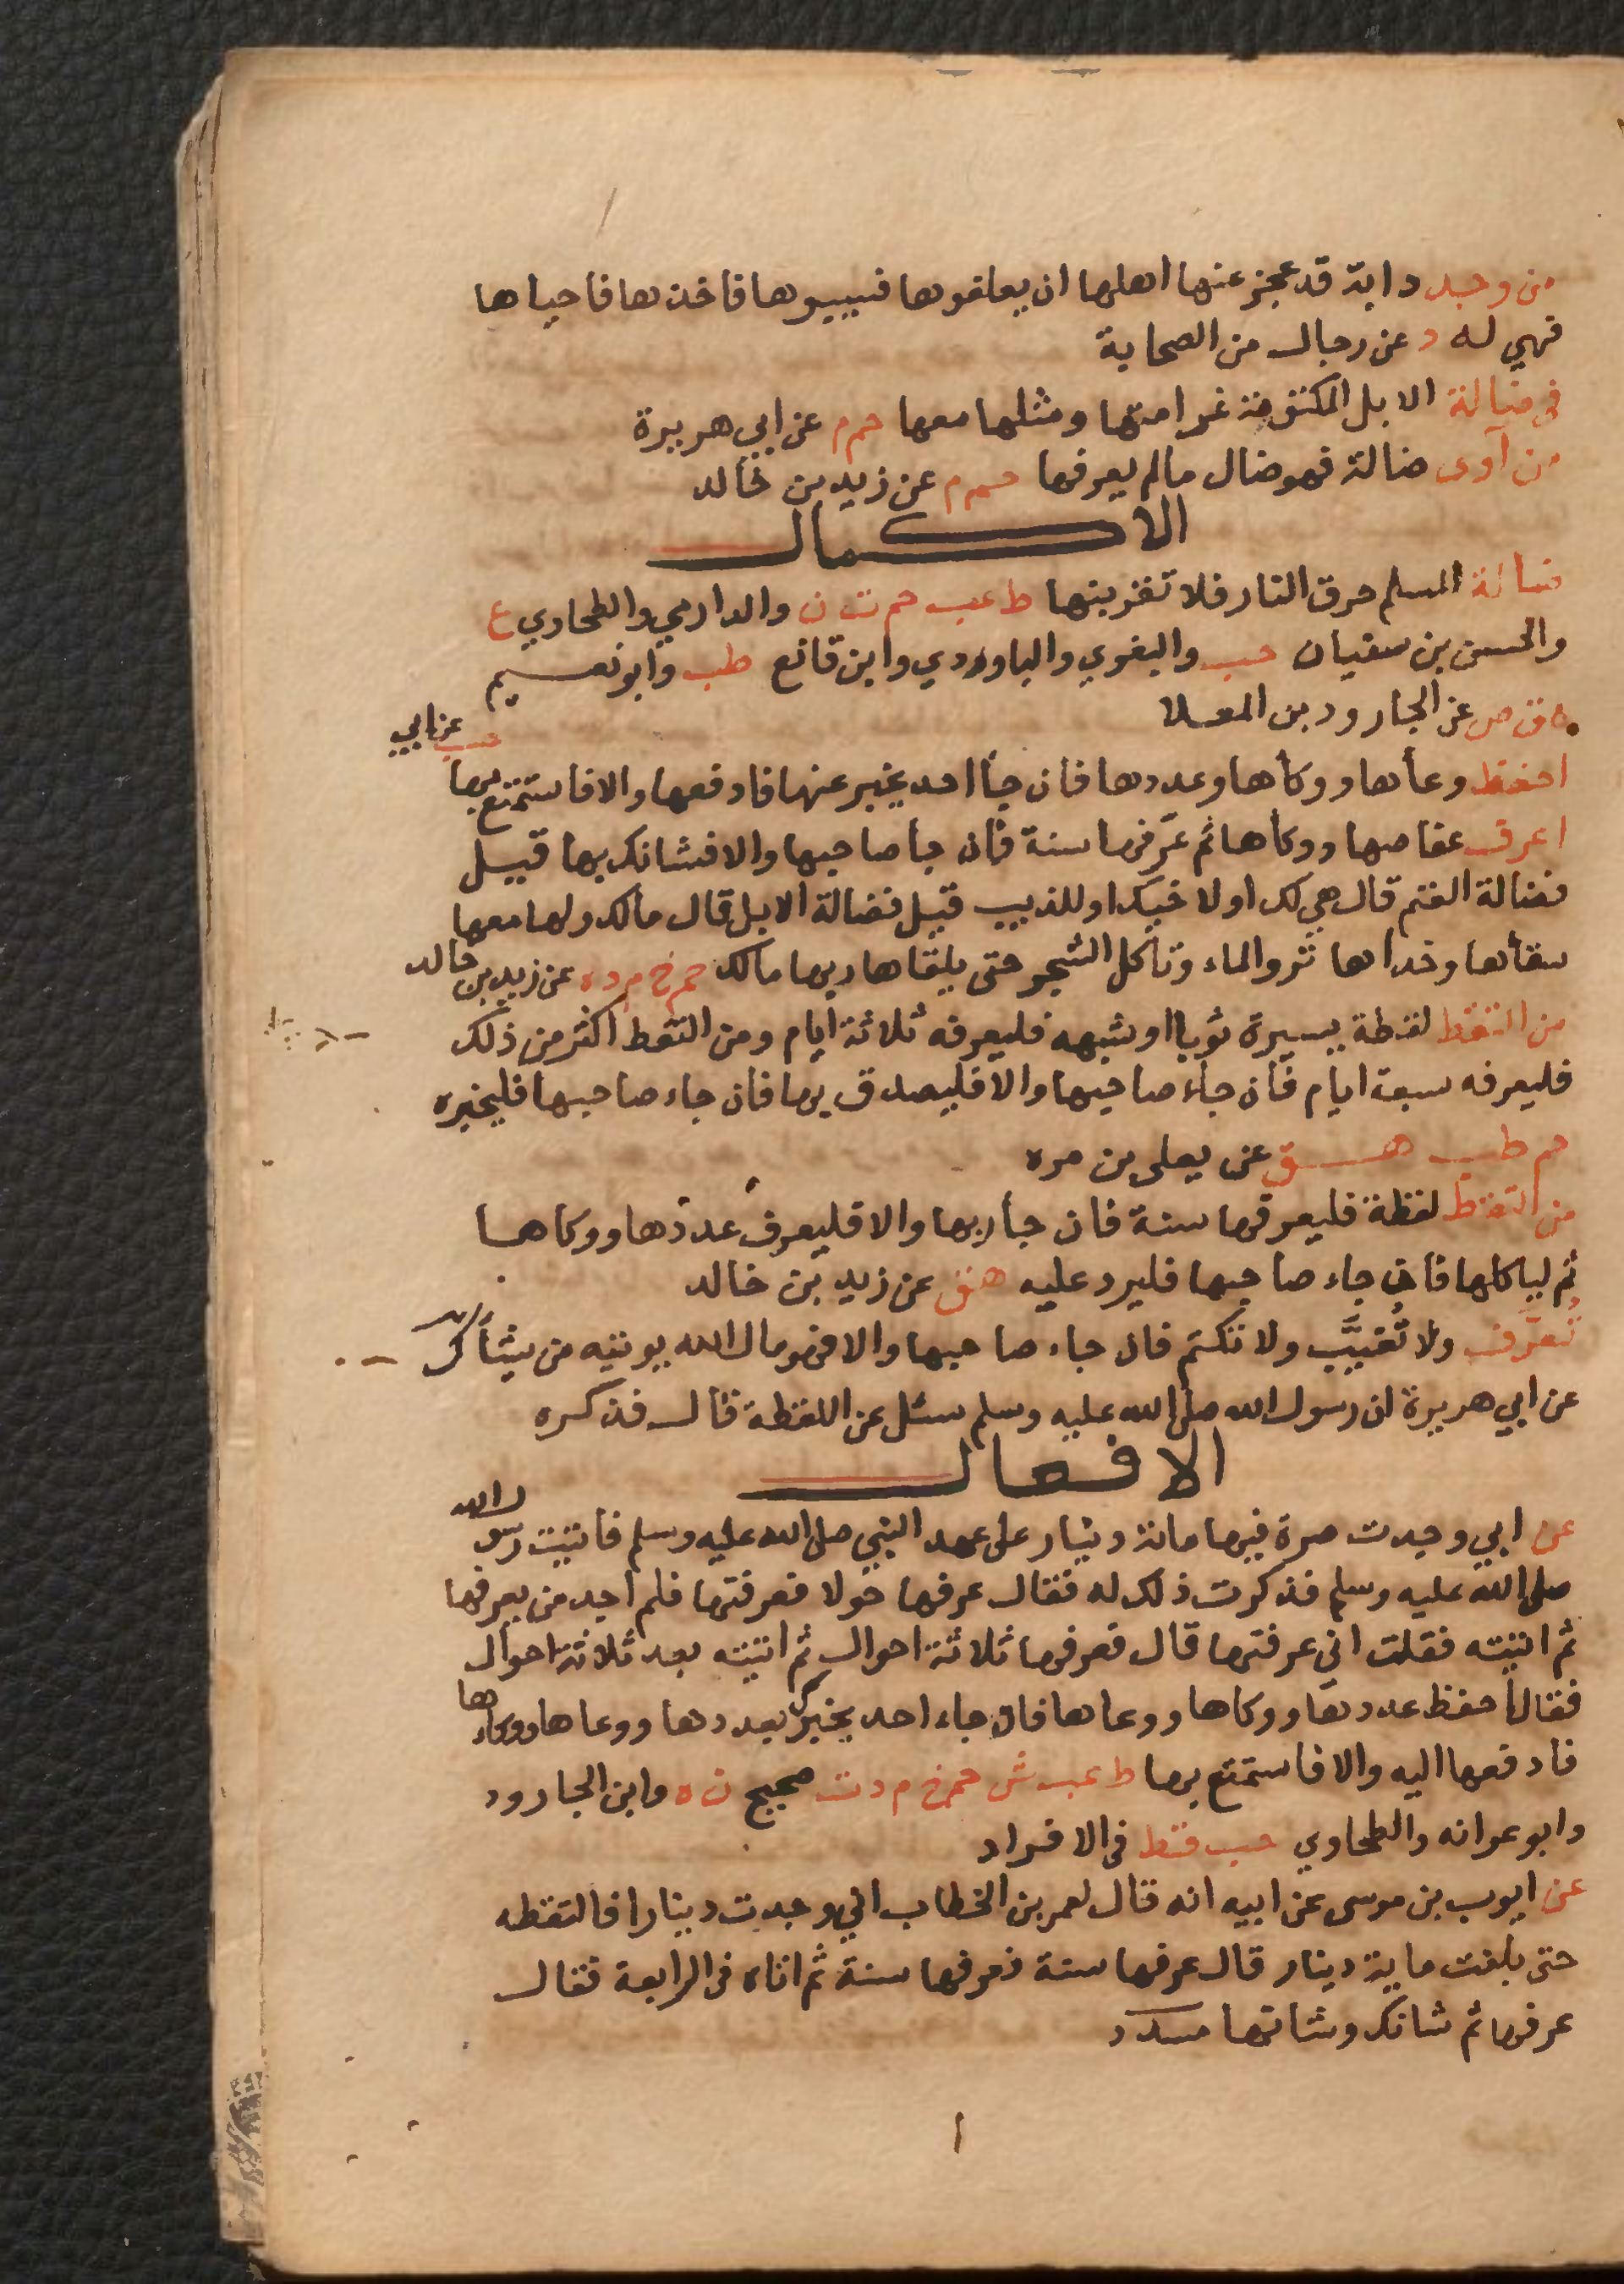 من وجد دابة قد عجز عنها اهلها ان يعلفوها فسيبوها فاخذها فاحياها
فهي له د عن رجال من الصحابة
في ضالة الابل المكتومة غرامتها ومثلها معها حم م عن ابي هريرة
من آوى ضالة فهو ضال ما لم يعرفها حم م عن زيد بن خالد
الاكمال
ضالة المسلم حرق النار فلا تقربنها ط عب حم ت ن والدارمي والطحاوي ع
والحسن بن سفيان حب والبغوي والباوردي وابن قانع طب وابو نعيم
ه ق ض عن الجارود بن المعلا
احفظ وعأها ووكأها وعددها فان جأ احد يخبر عنها فادفعها والا فاستمتع بها حب عن ابي
اعرف عفاصها ووكأها ثم عرّفها سنة فان جا صاحبها والا فشانك بها قيل
فضالة الغنم قال هي لك او لاخيك او للذيب قيل فضالة الابل قال مالك ولها معها
سقأها وحذاها ترد الماء وتاكل الشجر حتى يلقاها ربها مالك حم خ م د ه عن زيد بن خالد
من التقط لقطة يسيرة ثوبا او شبهه فليعرفه ثلاثة ايام ومن التقط اكثر من ذلك
فليعرفه سبعة ايام فان جاء صاحبها والا فليصدق بها فان جاء صاحبها فليخبره
حم طب هق عن يعلى بن مره
من التقط لقطة فليعرفها سنة فان جأ ربها والا فليعرف عددها ووكاها
ثم لياكلها فان جاء صاحبها فليرد عليه هق عن زيد بن خالد
تُعَرَّف ولا تُغيَّب ولا تكتم فان جاء صاحبها والا فهو مال الله يوتيه من يشأ ك
عن ابي هريرة ان رسول الله صلى الله عليه وسلم سئل عن اللقطة قال فذكره
الافعال
عن ابي وجدت صرة فيها مائة دينار على عهد النبي صلى الله عليه وسلم فاتيت رسول الله
صلى الله عليه وسلم فذكرت ذلك له فقال عرفها حولا فعرفتها فلم اجد من يعرفها
ثم اتيته فقلت اني عرفتها قال فعرفها ثلاثة احوال ثم اتيته بعد ثلاثة احوال
فقال احفظ عددها ووكاها ووعاها فان جاء احد يخبرك بعددها ووعاها ووكاءها
فادفعها اليه والا فاستمتع بها ط عب ش حم خ م د ت صحيح ن ه وابن الجارود
وابو عوانه والطحاوي حب قط في الافراد
عن ايوب بن موسى عن ابيه انه قال لعمر بن الخطاب اني وجدت دينارا فالتقطه
حتى بلغت ماية دينار قال عرفها سنة فعرفها سنة ثم اتاه في الرابعة فقال
عرفها ثم شانك وشانها مسدد